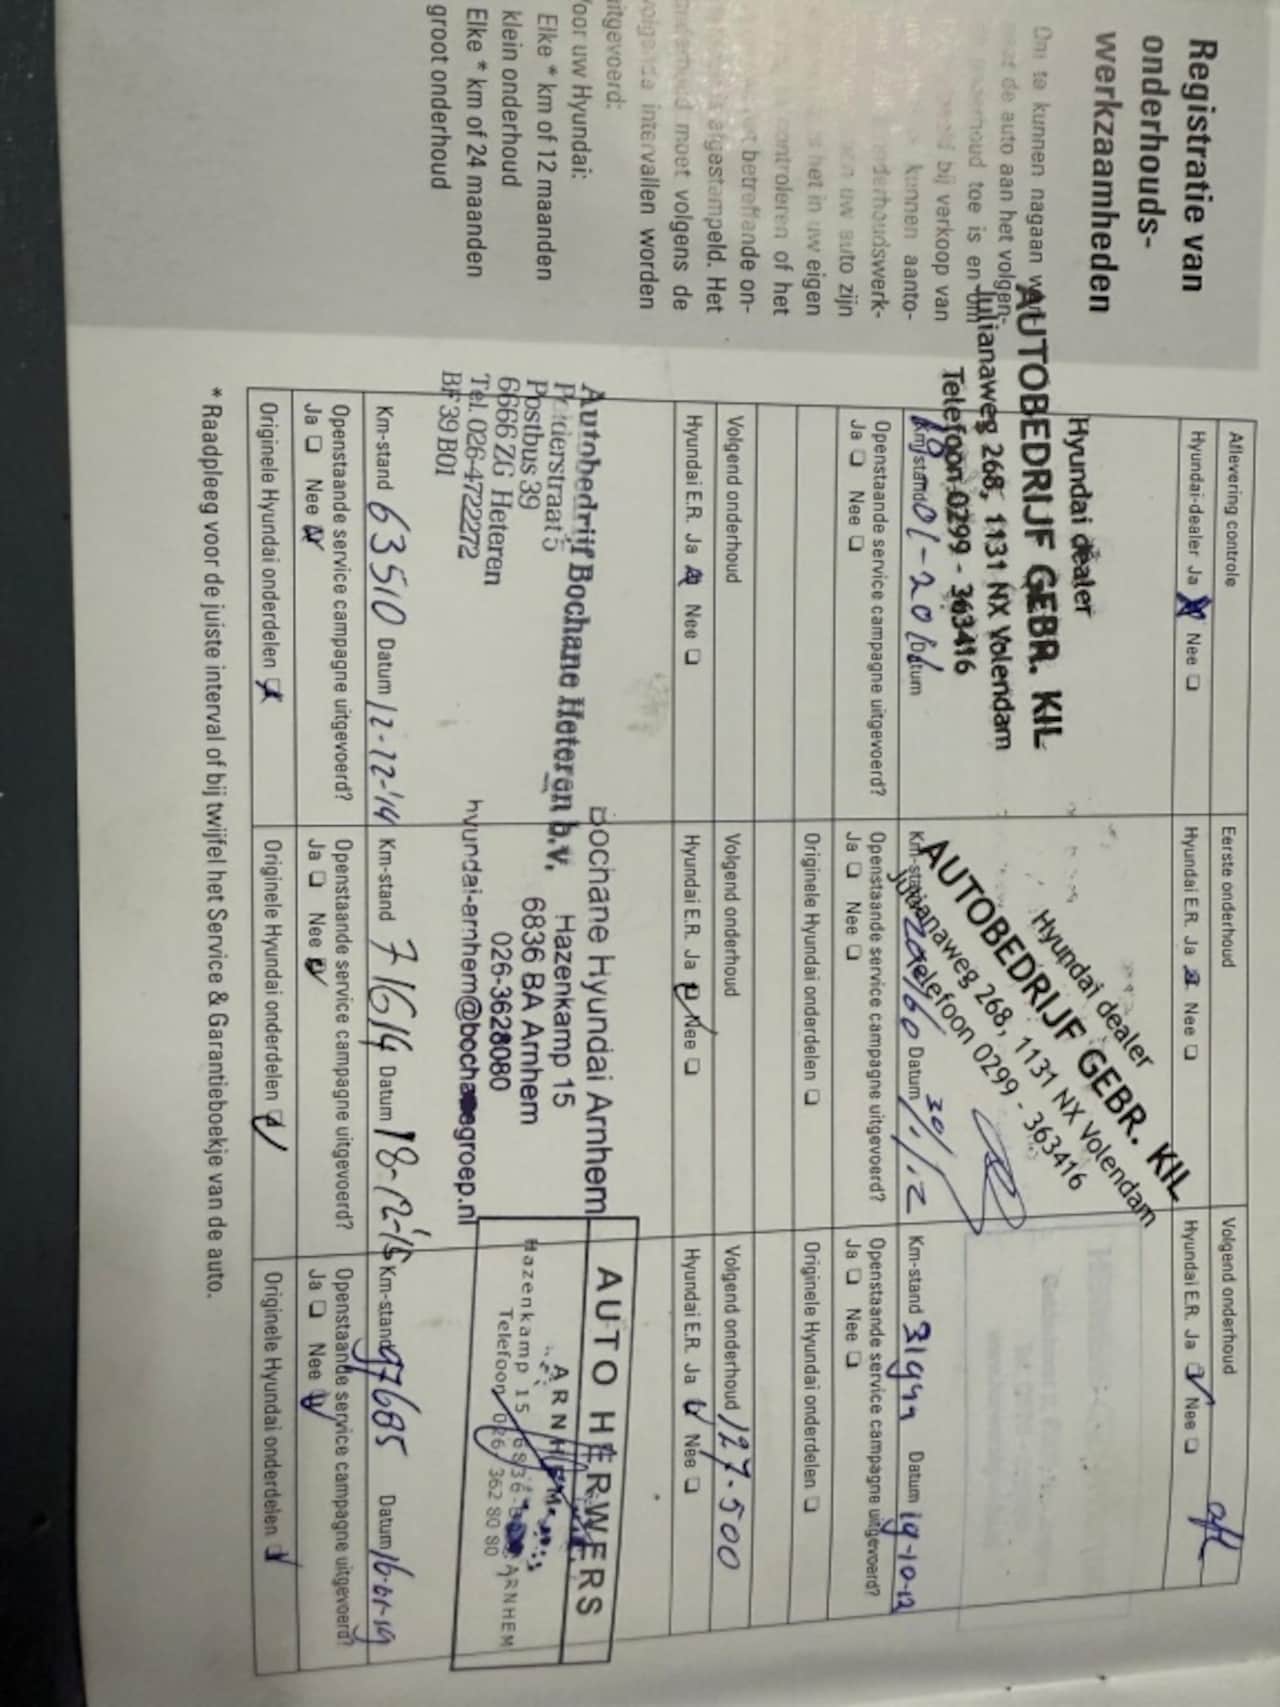 Registratie van
onderhouds-
werkzaamheden
Om te kunnen nagaan
de auto aan het volgen-
toe is en om
bij verkoop van
kunnen aanto-
onderhoudswerk-
uw auto zijn
het in uw eigen
controleren of het
betreffende on-
afgestempeld. Het
onderhoud moet volgens de
volgende intervallen worden
uitgevoerd:
Voor uw Hyundai:
Elke * km of 12 maanden
klein onderhoud
Elke * km of 24 maanden
groot onderhoud
Aflevering controle
Hyundai-dealer Ja Nee
Hyundai dealer
AUTOBEDRIJF GEBR. KIL
Julianaweg 268, 1131 NX Volendam
Telefoon 0299 - 363416
Km-stand Datum
Openstaande service campagne uitgevoerd?
Ja Nee
Eerste onderhoud
Hyundai E.R. Ja Nee
Hyundai dealer
AUTOBEDRIJF GEBR. KIL
Julianaweg 268, 1131 NX Volendam
Telefoon 0299 - 363416
Km-stand Datum
Openstaande service campagne uitgevoerd?
Ja Nee
Originele Hyundai onderdelen
Volgend onderhoud
Hyundai E.R. Ja Nee
Km-stand Datum 19-10-12
Openstaande service campagne uitgevoerd?
Ja Nee
Originele Hyundai onderdelen
Volgend onderhoud
Hyundai E.R. Ja Nee
Autobedrijf Bochane Heteren b.v.
Polderstraat 5
Postbus 39
6666 ZG Heteren
Tel. 026-4722272
BF 39 B01
Km-stand 63510 Datum 12-12-'14
Openstaande service campagne uitgevoerd?
Ja Nee
Originele Hyundai onderdelen
Volgend onderhoud
Hyundai E.R. Ja Nee
Bochane Hyundai Arnhem
Hazenkamp 15
6836 BA Arnhem
026-3628080
hyundai-arnhem@bochanegroep.nl
Km-stand 71614 Datum 18-12-'15
Openstaande service campagne uitgevoerd?
Ja Nee
Originele Hyundai onderdelen
Volgend onderhoud 127.500
Hyundai E.R. Ja Nee
AUTO HERWERS
ARNHEM
Hazenkamp 15 6836 ARNHEM
Telefoon 026 362 80 80
Km-stand 97685 Datum 16-01-19
Openstaande service campagne uitgevoerd?
Ja Nee
Originele Hyundai onderdelen
* Raadpleeg voor de juiste interval of bij twijfel het Service & Garantieboekje van de auto.